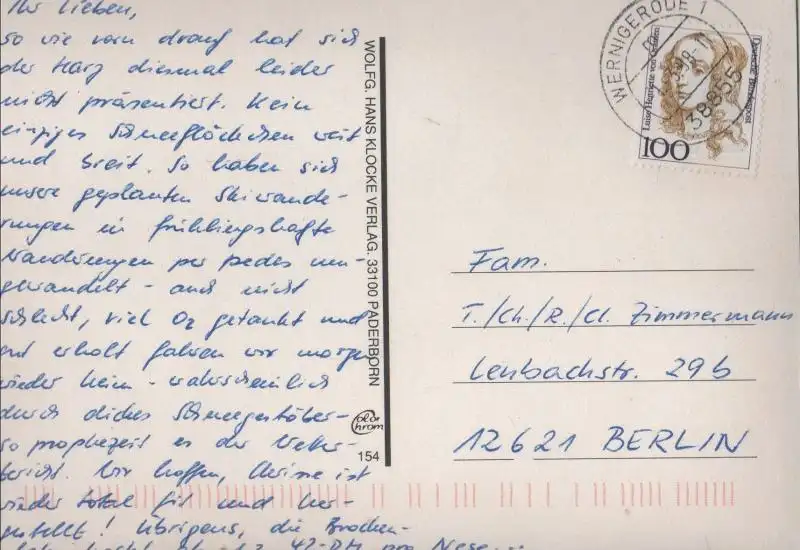 Ihr Lieben,
so wie vorn drauf hat sich
der Harz diesmal leider
nicht präsentiert. Kein
einziges Schneeglöckchen weit
und breit. So haben sich
unsere geplanten Skiwande-
rungen in frühlingshafte
Wanderungen per pedes um-
gewandelt - auch nicht
schlecht, viel O₂ getankt und
gut erholt fahren wir morgen
wieder heim - wahrscheinlich
durch dichtes Schneegestöber -
so prophezeit es der Wetter-
bericht. Wir hoffen, ist
wieder total fit und her-
gestellt! Übrigens, die Brocken-
42,-DM pro Nase...
WOLFG. HANS KLOCKE VERLAG. 33100 PADERBORN
color
chrom
154
WERNIGERODE 1
38855
Deutsche Bundespost
Luise Henriette von Oranien
100
Fam.
T./Ch./R./Cl. Zimmermann
Lenbachstr. 29b
12621 BERLIN